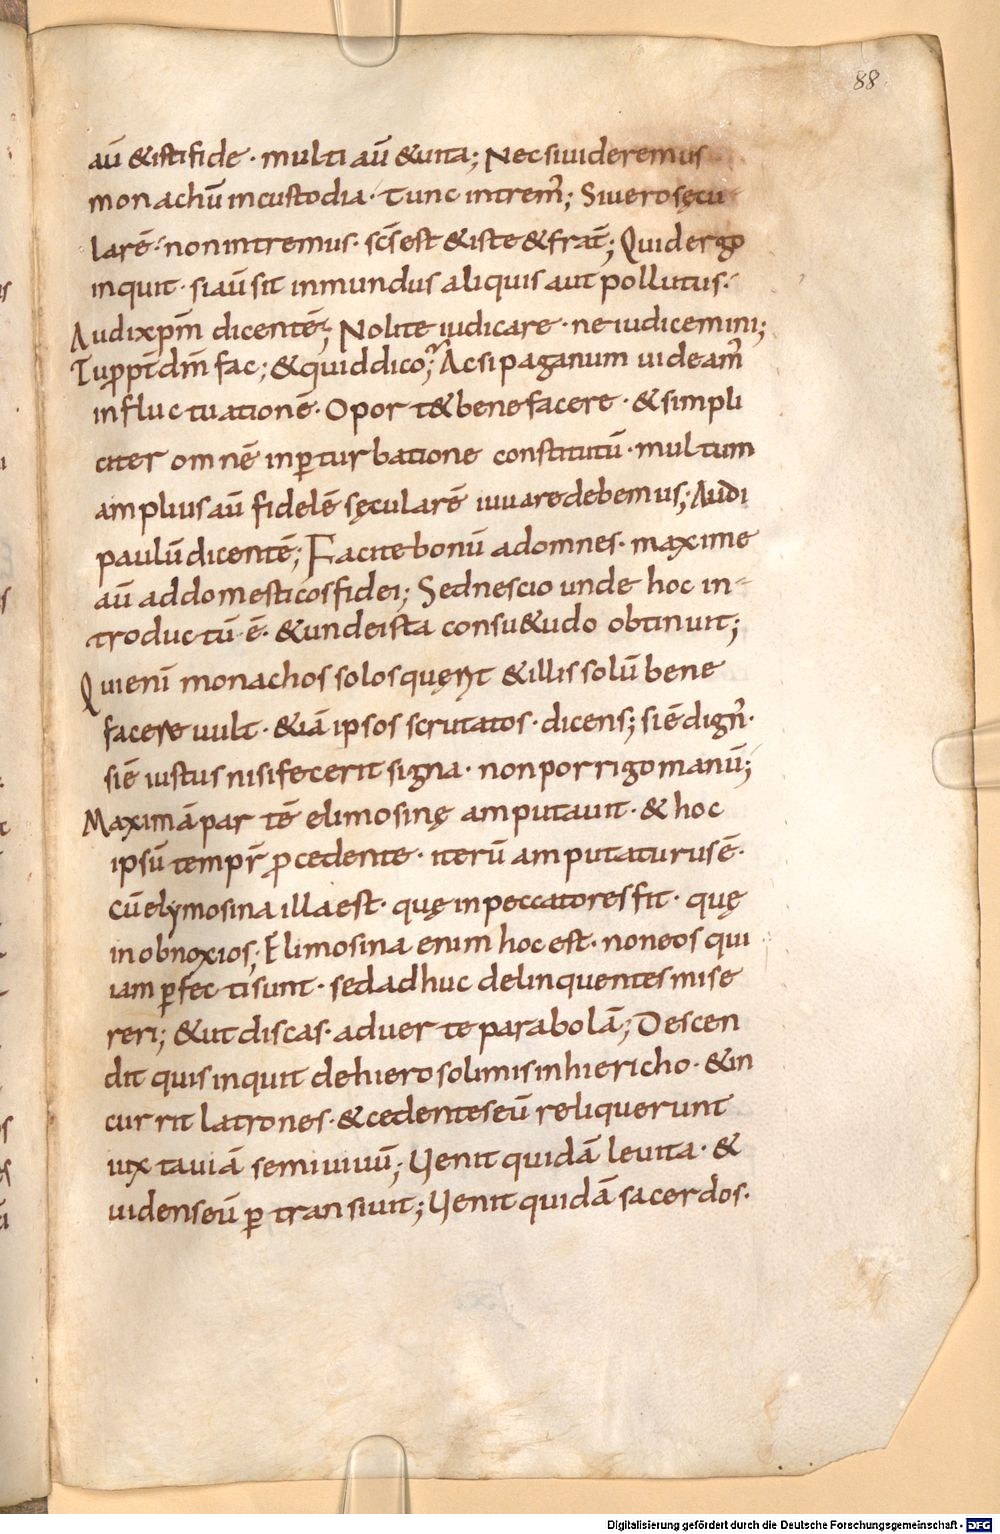 88
aū & isti fide · multi aū & uita; Nec si uideremus
monachū in custodia · tunc intrem̄; Si uero sęcu
larē · non intremus · scs̄ est & iste & frat̄; Quid ergo
inquit · si aū sit inmundus aliquis aut pollutus ·
Audi xp̄m dicentē; Nolite iudicare · ne iudicemini;
Tu ꝓpt̄ dm̄ fac; & quid dico; Ac si paganum uideam̄
in fluctuationē · Oportet bene facere · & simpli
citer omnē in ꝑturbatione constitutū · multum
amplius aū fidelē sęcularē iuuare debemus; Audi
paulū dicentē; Facite bonū ad omnes · maxime
aū ad domesticos fidei; Sed nescio unde hoc in-
troductū ē · & unde ista consu&udo obtinuit;
Qui enī monachos solos quęrit & illis solū bene
facere uult · & iā ipsos scrutatos · dicens; si ē dign̄ ·
si ē iustus nisi fecerit signa · non porrigo manū;
Maximā partē elimosinę amputauit · & hoc
ipsū tempr̄ ꝓcedente · iterū amputaturus ē ·
cū elymosina illa est · quę in peccatores fit · quę
in obnoxios; Elimosina enim hoc est · non eos qui
iam ꝑfecti sunt · sed adhuc delinquentes mise
reri; & ut discas · aduerte parabolā; Descen
dit quis inquit de hierosolimis in hiericho · & in
currit latrones · & cedentes eū reliquerunt
iuxta uiā semiuiuū; Uenit quidā leuita · &
uidens eū ꝑtransiuit; Uenit quidā sacerdos ·
Digitalisierung gefördert durch die Deutsche Forschungsgemeinschaft - DFG